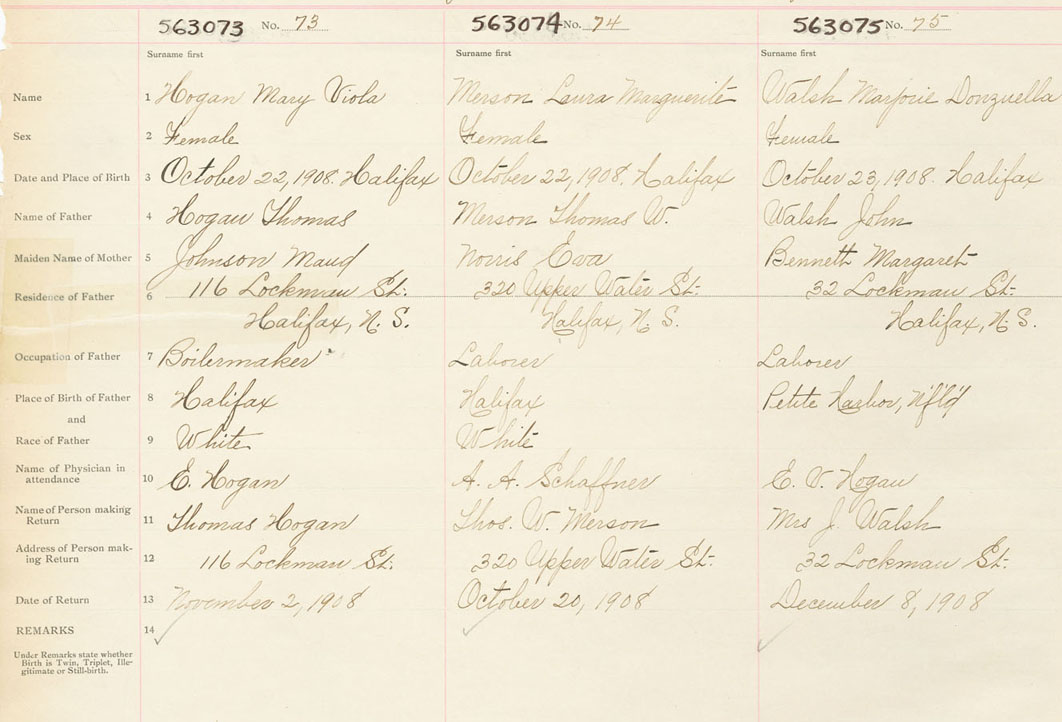 563073 No. 73 563074 No. 74 563075 No. 75
Surname first Surname first Surname first
Name 1 Hogan Mary Viola Merson Laura Marguerite Walsh Marjorie Donzuella
Sex 2 Female Female Female
Date and Place of Birth 3 October 22, 1908. Halifax October 22, 1908. Halifax October 23, 1908. Halifax
Name of Father 4 Hogan Thomas Merson Thomas W. Walsh John
Maiden Name of Mother 5 Johnson Maud Norris Eva Bennett Margaret
Residence of Father 6 116 Lockman St. 320 Upper Water St. 32 Lockman St.
Halifax, N. S. Halifax, N. S. Halifax, N. S.
Occupation of Father 7 Boilermaker Laborer Laborer
Place of Birth of Father 8 Halifax Halifax Petite Harbor, Nfld
and
Race of Father 9 White White
Name of Physician in
attendance 10 E. Hogan A. A. Schaffner E. V. Hogan
Name of Person making
Return 11 Thomas Hogan Thos. W. Merson Mrs J. Walsh
Address of Person mak-
ing Return 12 116 Lockman St. 320 Upper Water St. 32 Lockman St.
Date of Return 13 November 2, 1908 October 20, 1908 December 8, 1908
REMARKS 14
Under Remarks state whether
Birth is Twin, Triplet, Ille-
gitimate or Still-birth.